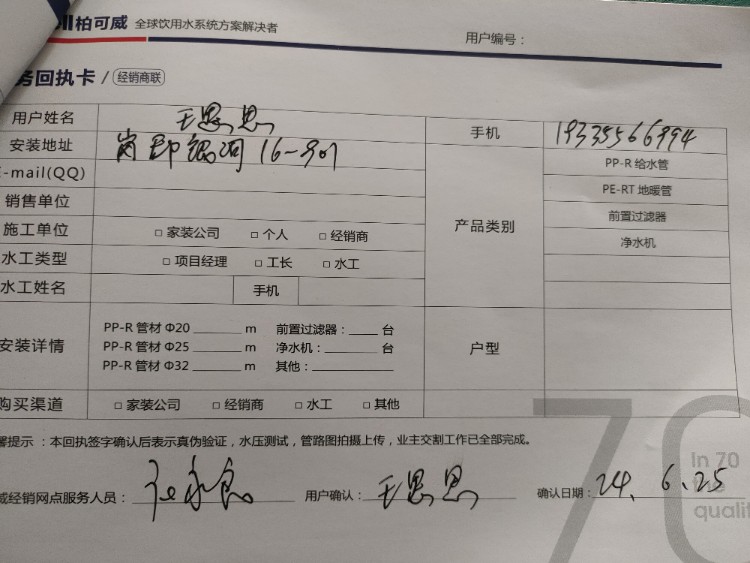 柏可威 全球饮用水系统方案解决者
用户编号：
务回执卡 / 经销商联
用户姓名 王思思 手机
安装地址 16-901
E-mail(QQ) PP-R 给水管
销售单位 产品类别 PE-RT 地暖管
施工单位 □ 家装公司 □ 个人 □ 经销商 前置过滤器
水工类型 □ 项目经理 □ 工长 □ 水工 净水机
水工姓名 手机
安装详情 PP-R 管材 Φ20 ______ m 前置过滤器：____ 台 户型
PP-R 管材 Φ25 ______ m 净水机：______ 台
PP-R 管材 Φ32 ______ m 其他：________
购买渠道 □ 家装公司 □ 经销商 □ 水工 □ 其他
署提示：本回执签字确认后表示真伪验证，水压测试，管路图拍摄上传，业主交割工作已全部完成。
威经销网点服务人员： 用户确认：王思思 确认日期：24、6.25
70
In 70
qualit